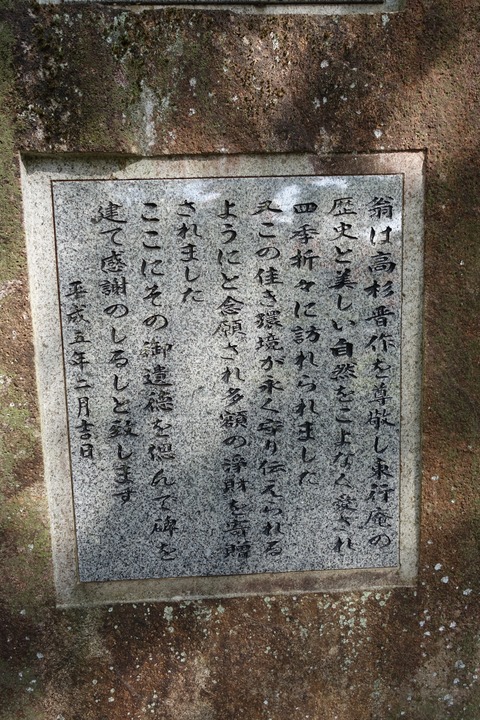 翁は高杉晋作を尊敬し東行庵の
歴史と美しい自然をこよなく愛され
四季折々に訪れられました
又この佳き環境が永く守り伝えられる
ようにと念願され多額の浄財を寄贈
されました
ここにその御遺徳を偲んで碑を
建て感謝のしるしと致します
平成五年二月吉日